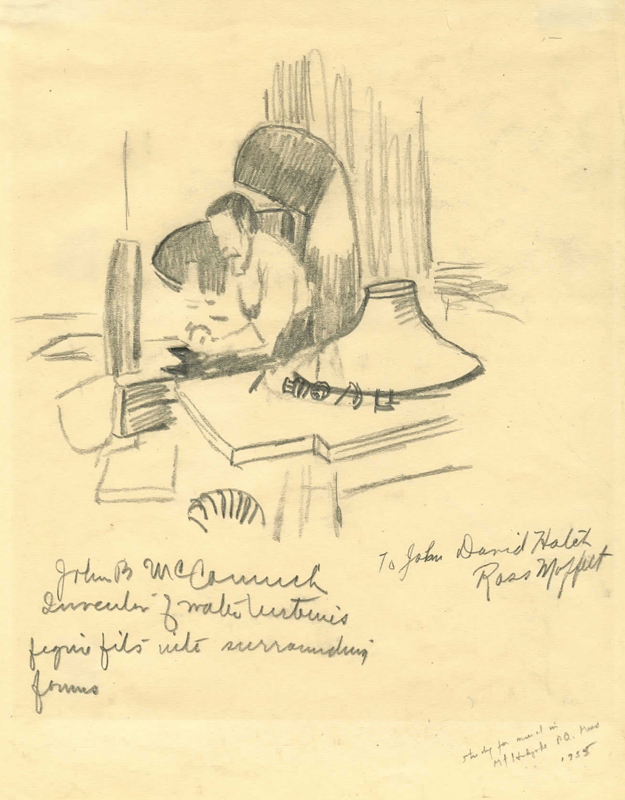 John B McCormick
Inventor of water turbines
figure fits into surrounding
forms
To John David Hatch
Ross Moffett
study for mural in
Mt Holyoke P.O. Mass
1935